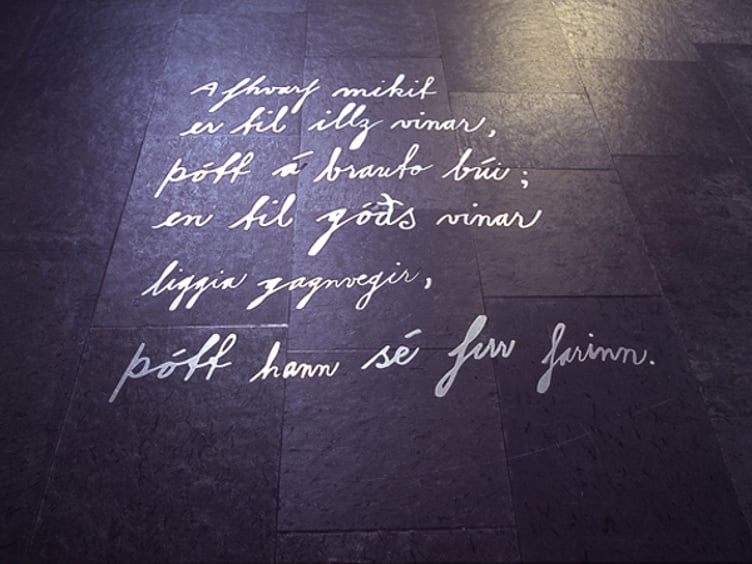 Afhvarf mikit
er til illz vinar,
þótt á brauto búi;
en til góðs vinar
liggia gagnvegir,
þótt hann sé firr farinn.